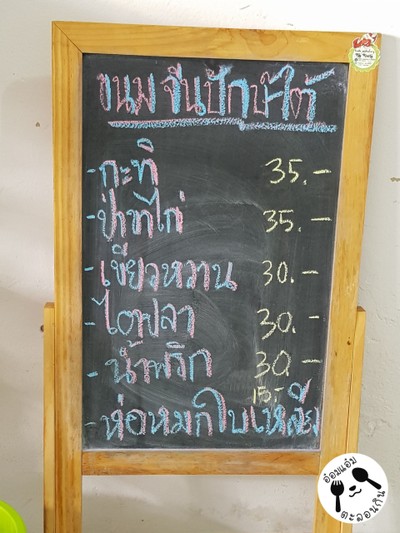 ขนมจีนปักษ์ใต้
-กะทิ 35.-
-ป่าตีไก่ 35.-
-เขียวหวาน 30.-
-ไตปลา 30.-
-น้ำพริก 30.-
15.-
-ห่อหมกใบเหลียง
อ๋อมแอ๋ม
ตะลอนกิน